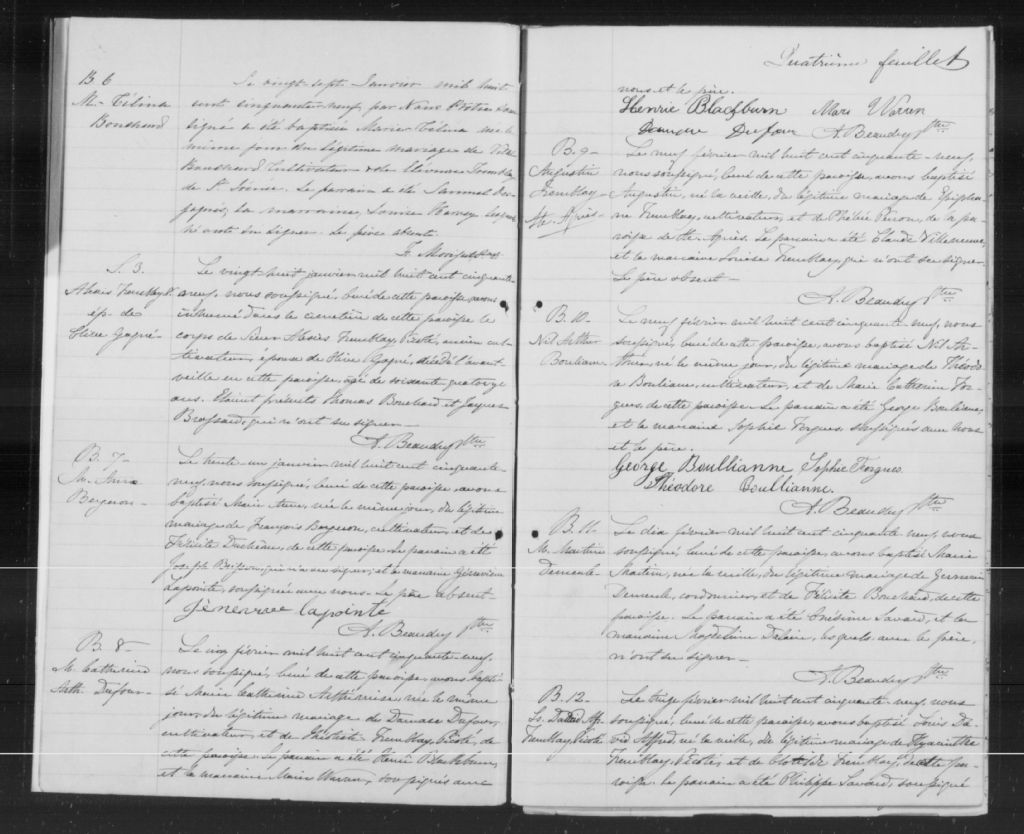 B. 6
M. Célina
Bouchard
Le vingt sept Janvier mil huit
cent cinquante neuf, par Nous Prêtre sous
signé a été baptisée Marie Célina née le
même jour du légitime mariage de
Bouchard Cultivateur & de Eléonore Tremblay
de St Irénée. Le parrain a été Samuel Des
gagnés, la marraine, Louise Harvey lesquels
n'ont su signer. Le père absent.
S. 3.
Alexis Tremblay P.
ép. de
Olive Gagné
Le vingt huit janvier mil huit cent cinquante
neuf, nous soussigné, curé de cette paroisse avons
inhumé dans le cimetière de cette paroisse le
corps de Sieur Alexis Tremblay Picoté, ancien cul
tivateur, épouse de Olive Gagné, décédé l'avant
veille en cette paroisse, agé de soixante quatorze
ans. Etaient présents Thomas Bouchard et Jacques
Brassard, qui n'ont su signer —
A. Beaudry Ptre
B. 7-
M. Anna
Bergeron-
Le trente-un janvier mil huit cent cinquante-
neuf, nous soussigné, curé de cette paroisse, avons
baptisé Marie Anna, née le même jour, du légitime
mariage de François Bergeron, cultivateur, et de
Félicité de cette paroisse. Le parrain a été
Joseph qui n'a su signer, et la marraine Géneviève
Lapointe, soussignée avec nous. Le père absent-
Génevieve Lapointe
A. Beaudry Ptre
B. 8-
M. Catherine
Arth. Dufour-
Le cinq février mil huit cent cinquante-neuf,
nous soussigné, curé de cette paroisse, avons bapti-
sé Marie Catherine Arthémise, née le même
jour, du légitime mariage de Damase Dufour,
cultivateur, et de Tremblay, Picoté, de
cette paroisse. Le parrain a été Henri Blackburn,
et la marraine Marie Warren, soussignés avec
Quatrième feuillet
nous et le père.
Henrie Blackburn Marie Warren
Damase Dufour A. Beaudry Ptre
B. 9-
Augustin
Tremblay
Ste. Agnès-
Le neuf février mil huit cent cinquante-neuf,
nous soussigné, curé de cette paroisse, avons baptisé
Augustin, né la veille, du légitime mariage de Epipha-
ne Tremblay, cultivateur, et de Phébée Perron, de la pa-
roisse de Ste. Agnès. Le parrain a été Claude Villeneuve,
et la marraine Louise Tremblay, qui n'ont su signer.
Le père absent —
A. Beaudry Ptre
B. 10-
Nil Arthur
Boulianne
Le neuf février mil huit cent cinquante neuf, nous
soussigné, curé de cette paroisse, avons baptisé Nil Ar-
thur, né le même jour, du légitime mariage de Théodo-
re Boulianne, cultivateur, et de Marie Catherine For-
gues, de cette paroisse. Le parrain a été George Boulianne,
et la marraine Sophie Forgues, soussignés avec nous
et le père.
George Boullianne Sophie Forgues
Théodore Boullianne.
A. Beaudry Ptre
B. 11.
M. Martine
Demeule-
Le dix février mil huit cent cinquante neuf, nous
soussigné curé de cette paroisse, avons baptisé Marie
Martine, née la veille, du légitime mariage de Germain
Demeule, cordonnier, et de Félicité Bouchard, de cette
paroisse. Le parrain a été Onésime Savard, et la
marraine Magdeleine Dassin, lesquels avec le père,
n'ont su signer —
A. Beaudry Ptre
B. 12.
Ls. David Alf.
Tremblay Picoté
Le treize février mil huit cent cinquante-neuf, nous
soussigné, curé de cette paroisse, avons baptisé Louis Da-
vid Alfred, né la veille, du légitime mariage de Hyacinthe
Tremblay, Picoté, et de Clotilde Tremblay, de cette pa-
roisse. Le parrain a été Philippe Savard, soussigné